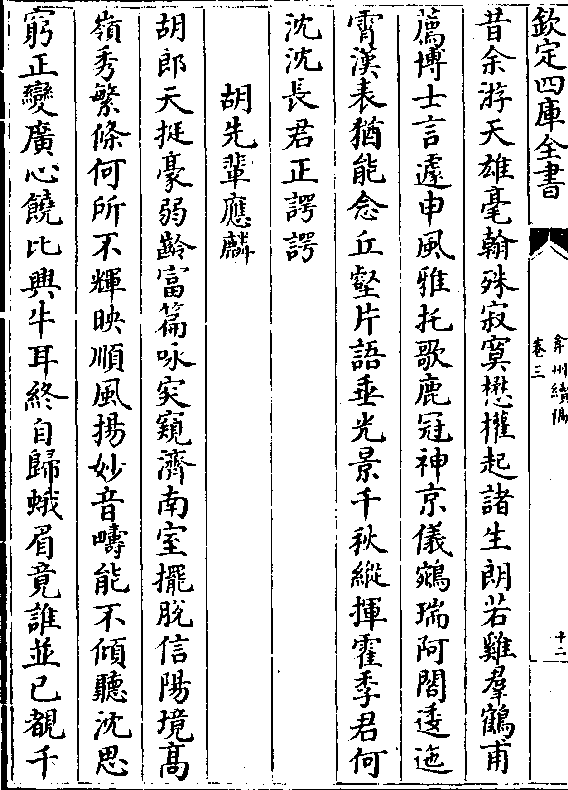 欽定四庫全書
弇州續稿
卷三
十二
昔余游天雄毫翰殊寂寞懋權起諸生朗若雞羣鶴甫
薦博士言遽申風雅托歌鹿冠神京儀鵷瑞阿閣逶迤
霄漢表猶能念丘壑片語垂光景千秋縱揮霍季君何
沈沈長君正諤諤
胡先輩應麟
胡郎天挺豪弱齡富篇咏突窺濟南室擺脫信陽境髙
嶺秀繁條何所不輝映順風揚妙音疇能不傾聽沈思
窮正變廣心饒比興牛耳終自歸蛾眉竟誰並已覩千